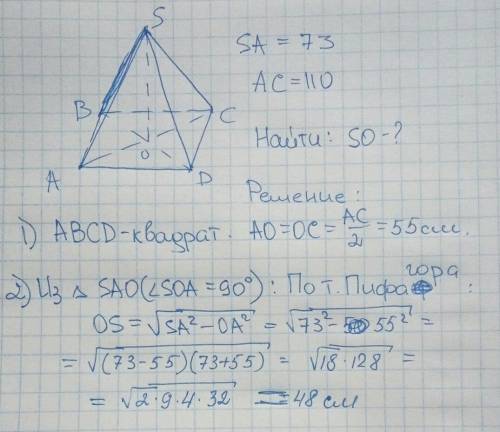 S
SA = 73
AC=110
B
C
O
Найти: SO-?
A
D
Решение:
1) ABCD-квадрат. AO=OC=AC/2=55см.
2) Из △ SAO(∠SOA=90°): По т. Пифагора:
OS=√(SA²-OA²) = √(73²-55²) =
= √((73-55)(73+55)) = √(18·128) =
= √(2·9·4·32) = 48 см